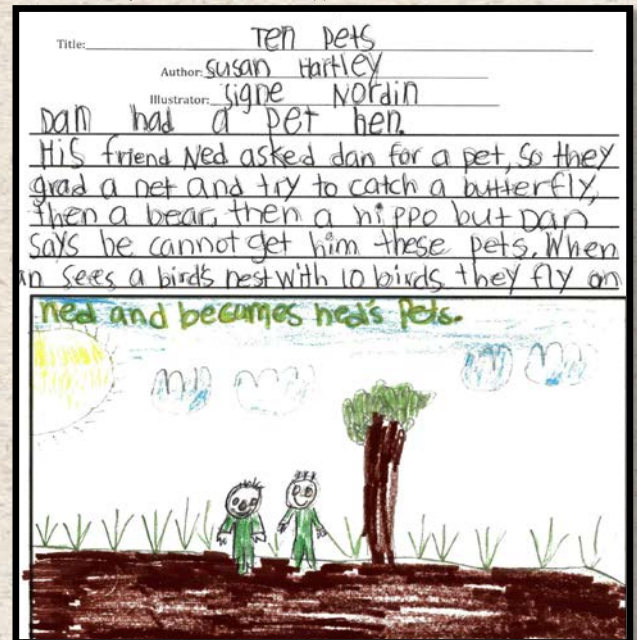 Title: Ten Pets
Author: Susan Hartley
Illustrator: Signe Nordin
Dan had a pet hen.
His friend Ned asked dan for a pet, So they
grad a net and try to catch a butterfly,
then a bear, then a hippo but Dan
says be cannot get him these pets. When
an sees a bird's nest with 10 birds they fly on
ned and becomes ned's Pets.